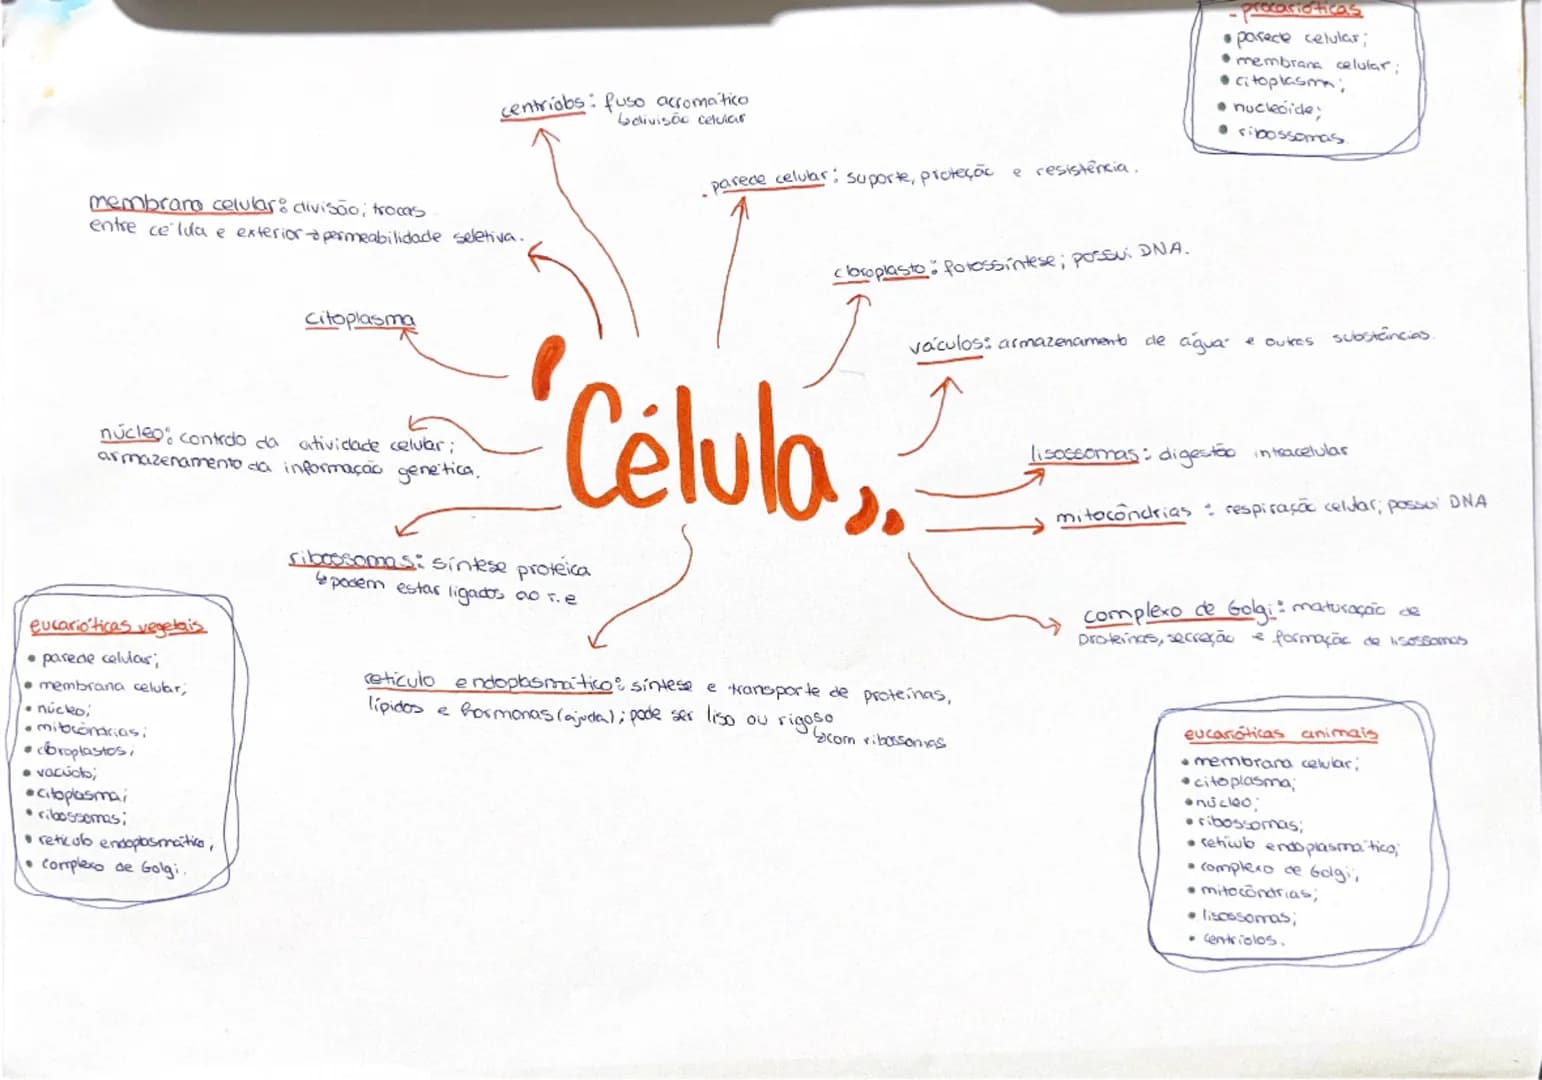 - procarióticas
• parede celular;
• membrana celular;
• citoplasma;
• nucleóide;
• ribossomas.
centríolos: fuso acromático
↳divisão celular
parede celular: suporte, proteção e resistência.
membrana celular: divisão; trocas
entre célula e exterior → permeabilidade seletiva.
cloroplasto: fotossíntese; possui DNA.
citoplasma
vacúolos: armazenamento de água e outras substâncias.
"Célula"
núcleo: controlo da atividade celular;
armazenamento da informação genética.
lisossomas: digestão intracelular
mitocôndrias: respiração celular; possui DNA
ribossomas: síntese protéica
↳podem estar ligados ao r.e
complexo de Golgi: maturação de
proteínas, secreção e formação de lisossomas
retículo endoplasmático: síntese e transporte de proteínas,
lípidos e hormonas (ajuda); pode ser liso ou rigoso
↳com ribossomas
eucarióticas vegetais
• parede celular;
• membrana celular;
• núcleo;
• mitocôndrias;
• cloroplastos;
• vacúolo;
• citoplasma;
• ribossomas;
• retículo endoplasmático;
• complexo de Golgi.
eucarióticas animais
• membrana celular;
• citoplasma;
• núcleo;
• ribossomas;
• retículo endoplasmático;
• complexo de Golgi;
• mitocôndrias;
• lisossomas;
• centríolos.